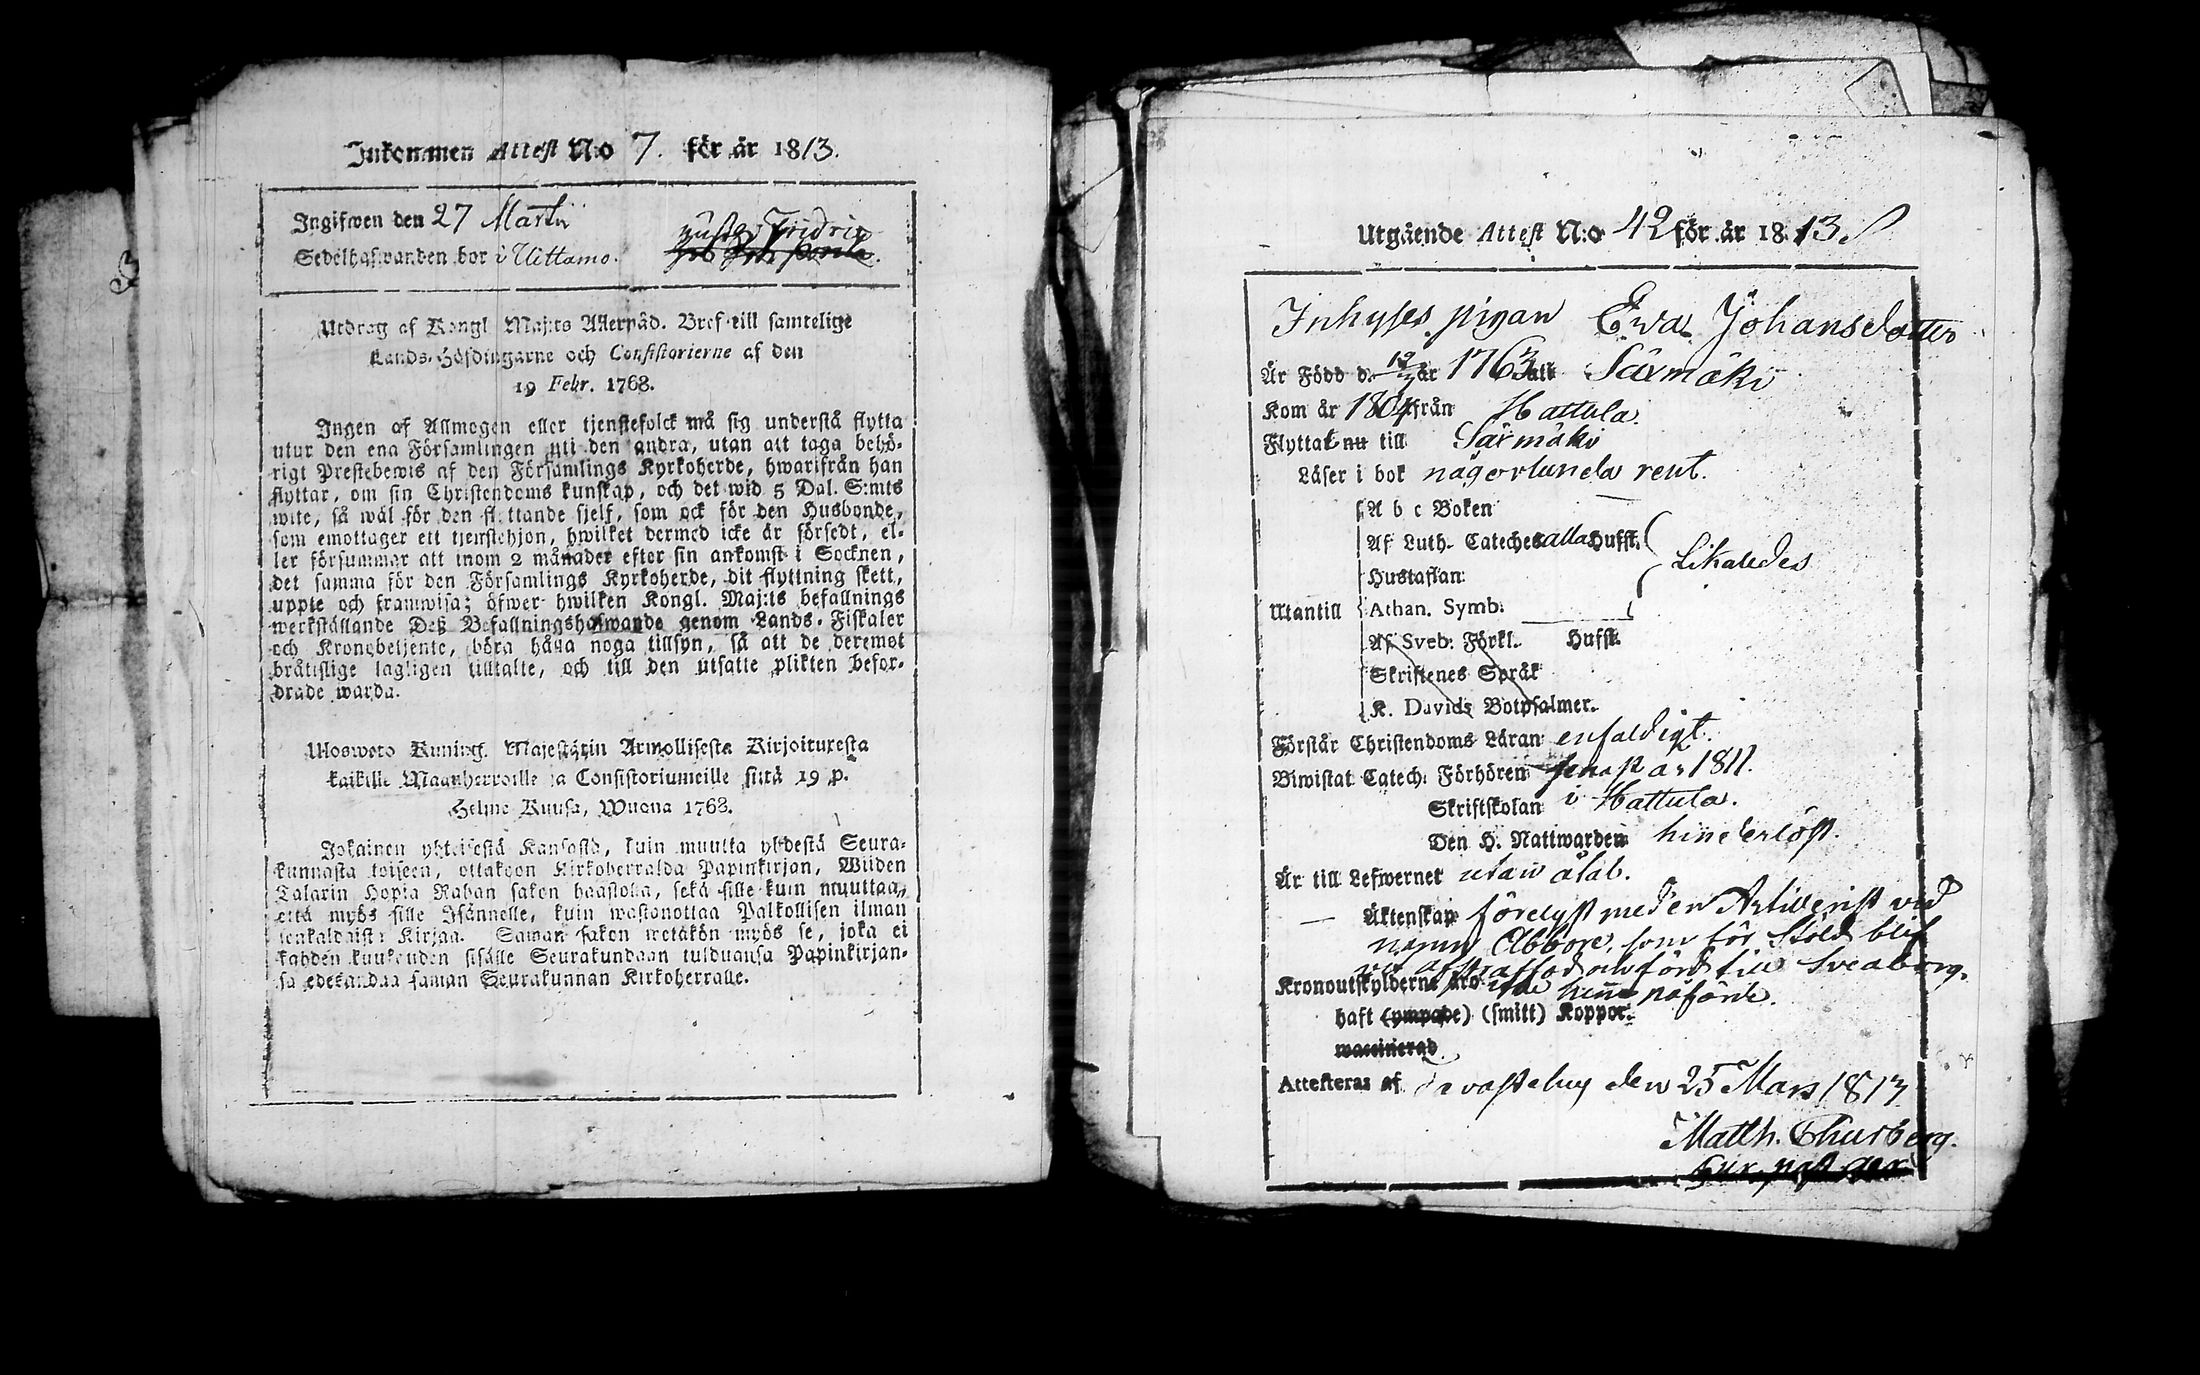 Inkommen Attest N:o 7. för år 1813.
Ingifwen den 27 Martii
Sedelhafwanden bor i Uittamo.
Gustaf Fridric
Utdrag af Kongl. Maj:ts Allernåd. Bref till samtelige
Lands-Höfdingarne och Consistorierne af den
19 Febr. 1768.
Ingen af Allmogen eller tjenstefolck må sig understå flytta
utur den ena Församlingen uti den andra, utan att taga behö-
rigt Prestebewis af den Församlings Kyrkoherde, hwarifrån han
flyttar, om sin Christendoms kunskap, och det wid 5 Dal. S:mts
wite, så wäl för den flyttande sjelf, som ock för den Husbonde,
som emottager ett tjenstehjon, hwilket dermed icke är försedt, el-
ler försummar att inom 2 månader efter sin ankomst i Socknen,
det samma för den Församlings Kyrkoherde, dit flyttning skett,
uppte och framwisa; öfwer hwilken Kongl. Maj:ts befallnings
werkställande Deß Befallningshafwande genom Lands-Fiskaler
och Kronobetjente, böra hålla noga tillsyn, så att de deremot
bråttslige lagligen tilltalte, och till den utsatte plikten befor-
drade warda.
Ulosweto Kuning. Majestätin Armollisesta Kirjoituxesta
kaikille Maanherroille ja Consistoriumeille siitä 19 p.
Helme Kuusa, Wuona 1768.
Jokainen yhteisestä Kansosta, kuin muutta yhdestä Seura-
kunnasta toiseen, ottakoon Kirkoherralda Papinkirjan, Wiiden
Talarin Hopia Rahan sakon haastolla, sekä sille kuin muuttaa,
että myös sille Isännelle, kuin wastanottaa Palkollisen ilman
senkaldaista Kirjaa. Saman sakon wetäkön myös se, joka ei
kahden kuukauden sisälle Seurakundaan tulduansa Papinkirjan-
sa edeskandaa saman Seurakunnan Kirkoherralle.
Utgående Attest N:o 42 för år 1813.
Inhyses pigan Ewa Johansdotter
Är Född d. 10/7 år 1763 uti Särmäki
Kom år 1804 från Hattula.
Flyttat nu till Särmäki
Läser i bok någorlunda rent.
A b c Boken
Af Luth. Cateches alla Hufst.
Likaledes
Hustaflan:
Utantill
Athan. Symb:
Af Sveb: Förkl. Hufst.
Skriftenes Språk
K. Davids Botpsalmer.
Förstår Christendoms Läran enfaldigt.
Biwistat Catech: Förhören senast år 1811.
Skriftskolan i Hattula.
Den H. Nattwarden hinderlöst.
Är till Lefwernet utan
Äktenskap förelyst med en Artillerist vid
namn Abbore, som för stöld blif
vit afstraffad och förd till Sveaborg.
Kronoutskylderna äro icke henne påförde.
haft (ympade) (smitt) Koppor.
waccinerad
Attesteras af Tavastehus den 25 Mars 1813
Matth. Thusberg.